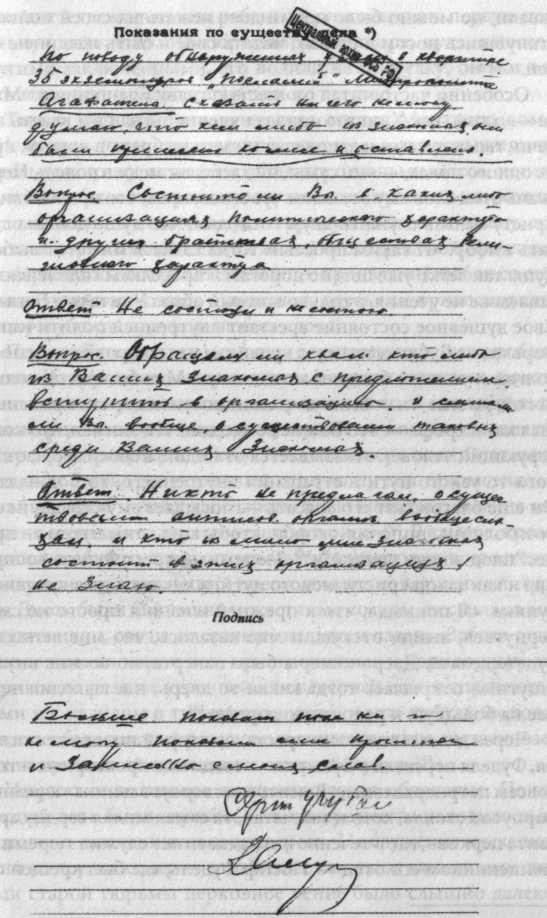 Показания по существу дела *)
По поводу обнаруженных у в квартире
35 экземпляров посланий Митрополита
Агафангела сказать ничего не могу
думаю, что кем либо из знакомых
были принесены ко мне и оставлены.
Вопрос. Состоите ли Вы в каких либо
организациях политического характера
и других братствах, обществах рели
гиозного характера
Ответ Не состоял и не состою.
Вопрос. Обращался ли к Вам кто либо
из Ваших знакомых с предложением
вступить в организацию и слышали
ли Вы вообще о существовании таковых
среди Ваших знакомых.
Ответ. Никто не предлагал, о сущес
твовании антисов. организ. вообще слы
шал и кто из моих знакомых
состоит в этих организациях,
не знаю.
Подпись
Больше показать пока ничего
не могу показания мне прочитаны
и записано с моих слов